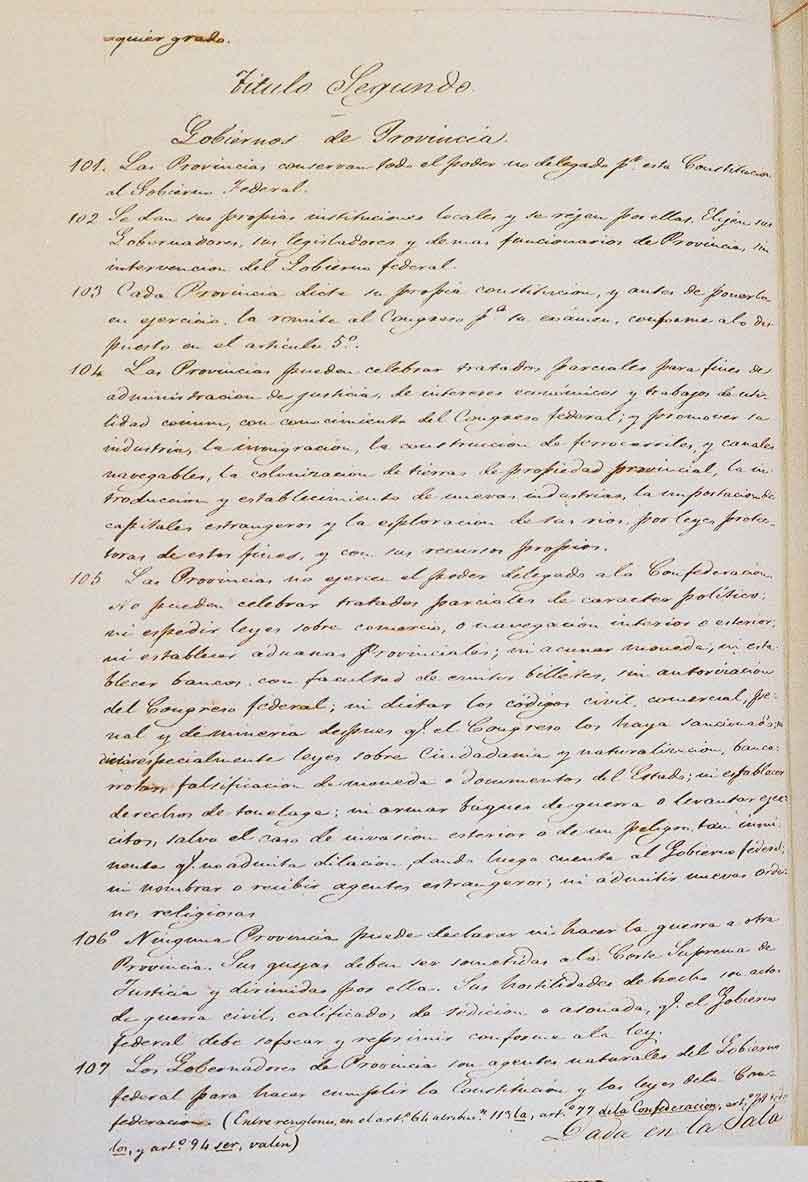 quier grado.
Titulo Segundo
Gobiernos de Provincia.
101. Las Provincias conservan todo el poder no delegado pr. esta Constitucion
al Gobierno Federal.
102 Se dan sus propias instituciones locales y se rijen por ellas. Elijen sus
Gobernadores, sus legisladores y demas funcionarios de Provincia, sin
intervencion del Gobierno federal.
103 Cada Provincia dicta su propia constitucion, y antes de ponerla
en ejercicio, la remite al Congreso pa. su exámen, conforme a lo dis
puesto en el artículo 5º.
104 Las Provincias pueden celebrar tratados parciales para fines de
administracion de justicia, de intereses económicos y trabajos de uti-
lidad comun, con conocimiento del Congreso federal; y promover su
industria, la inmigracion, la construccion de ferrocarriles, y canales
navegables, la colonizacion de tierras de propiedad provincial, la in-
troduccion y establecimiento de nuevas industrias, la importacion de
capitales estrangeros y la esploracion de sus rios, por leyes protec-
toras de estos fines, y con sus recursos propios.
105 Las Provincias no ejercen el poder delegado a la Confederacion.
No pueden celebrar tratados parciales de caracter político;
ni espedir leyes sobre comercio, o navegacion interior o esterior;
ni establecer aduanas Provinciales; ni acuñar moneda; ni esta-
blecer bancos con facultad de emitir billetes, sin autorizacion
del Congreso federal; ni dictar los códigos civil, comercial, pe-
nal y de mineria despues q. el Congreso los haya sancionado; ni
dictar especialmente leyes sobre Ciudadanía y naturalizacion, banca-
rrotas, falsificacion de moneda o documentos del Estado; ni establecer
derechos de tonelage; ni armar buques de guerra o levantar ejer-
citos, salvo el caso de invasion esterior o de un peligro tan inmi-
nente q. no admita dilacion, dando luego cuenta al Gobierno federal;
ni nombrar o recibir agentes estrangeros; ni admitir nuevas orde-
nes religiosas
106º Ninguna Provincia puede declarar ni hacer la guerra a otra
Provincia. Sus quejas deben ser sometidas a la Corte Suprema de
Justicia y dirimidas por ella. Sus hostilidades de hecho son actos
de guerra civil, calificados de sedicion o asonada, q. el Gobierno
federal debe sofocar y reprimir conforme a la ley.
107 Los Gobernadores de Provincia son agentes naturales del Gobierno
federal para hacer cumplir la Constitución y las leyes de la Con-
federacion. (Entre renglones, en el artº. 64 atribn. 11ª la, artº. 77 de la Confederacion, artº.
los, y artº. 94 ser, valen)
Dada en la Sala